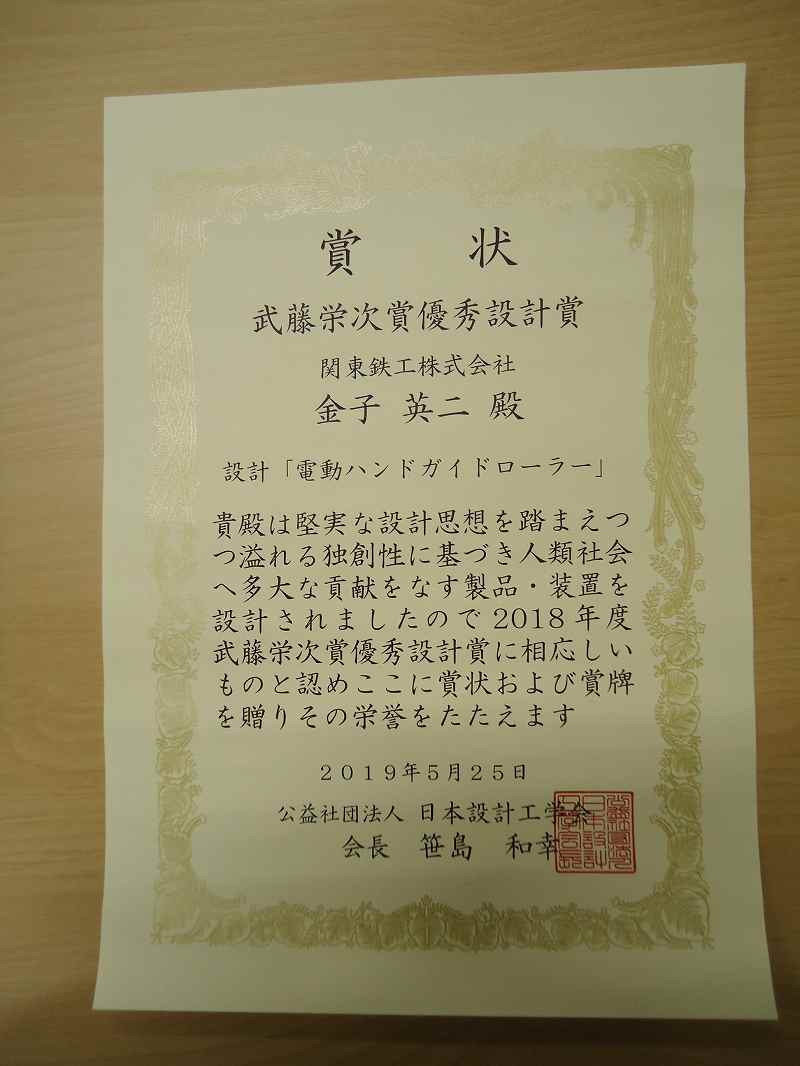 賞 状
武藤栄次賞優秀設計賞
関東鉄工株式会社
金子 英二 殿
設計「電動ハンドガイドローラー」
貴殿は堅実な設計思想を踏まえつ
つ溢れる独創性に基づき人類社会
へ多大な貢献をなす製品・装置を
設計されましたので2018年度
武藤栄次賞優秀設計賞に相応しい
ものと認めここに賞状および賞牌
を贈りその栄誉をたたえます
2019年5月25日
公益社団法人 日本設計工学会
会長 笹島 和幸